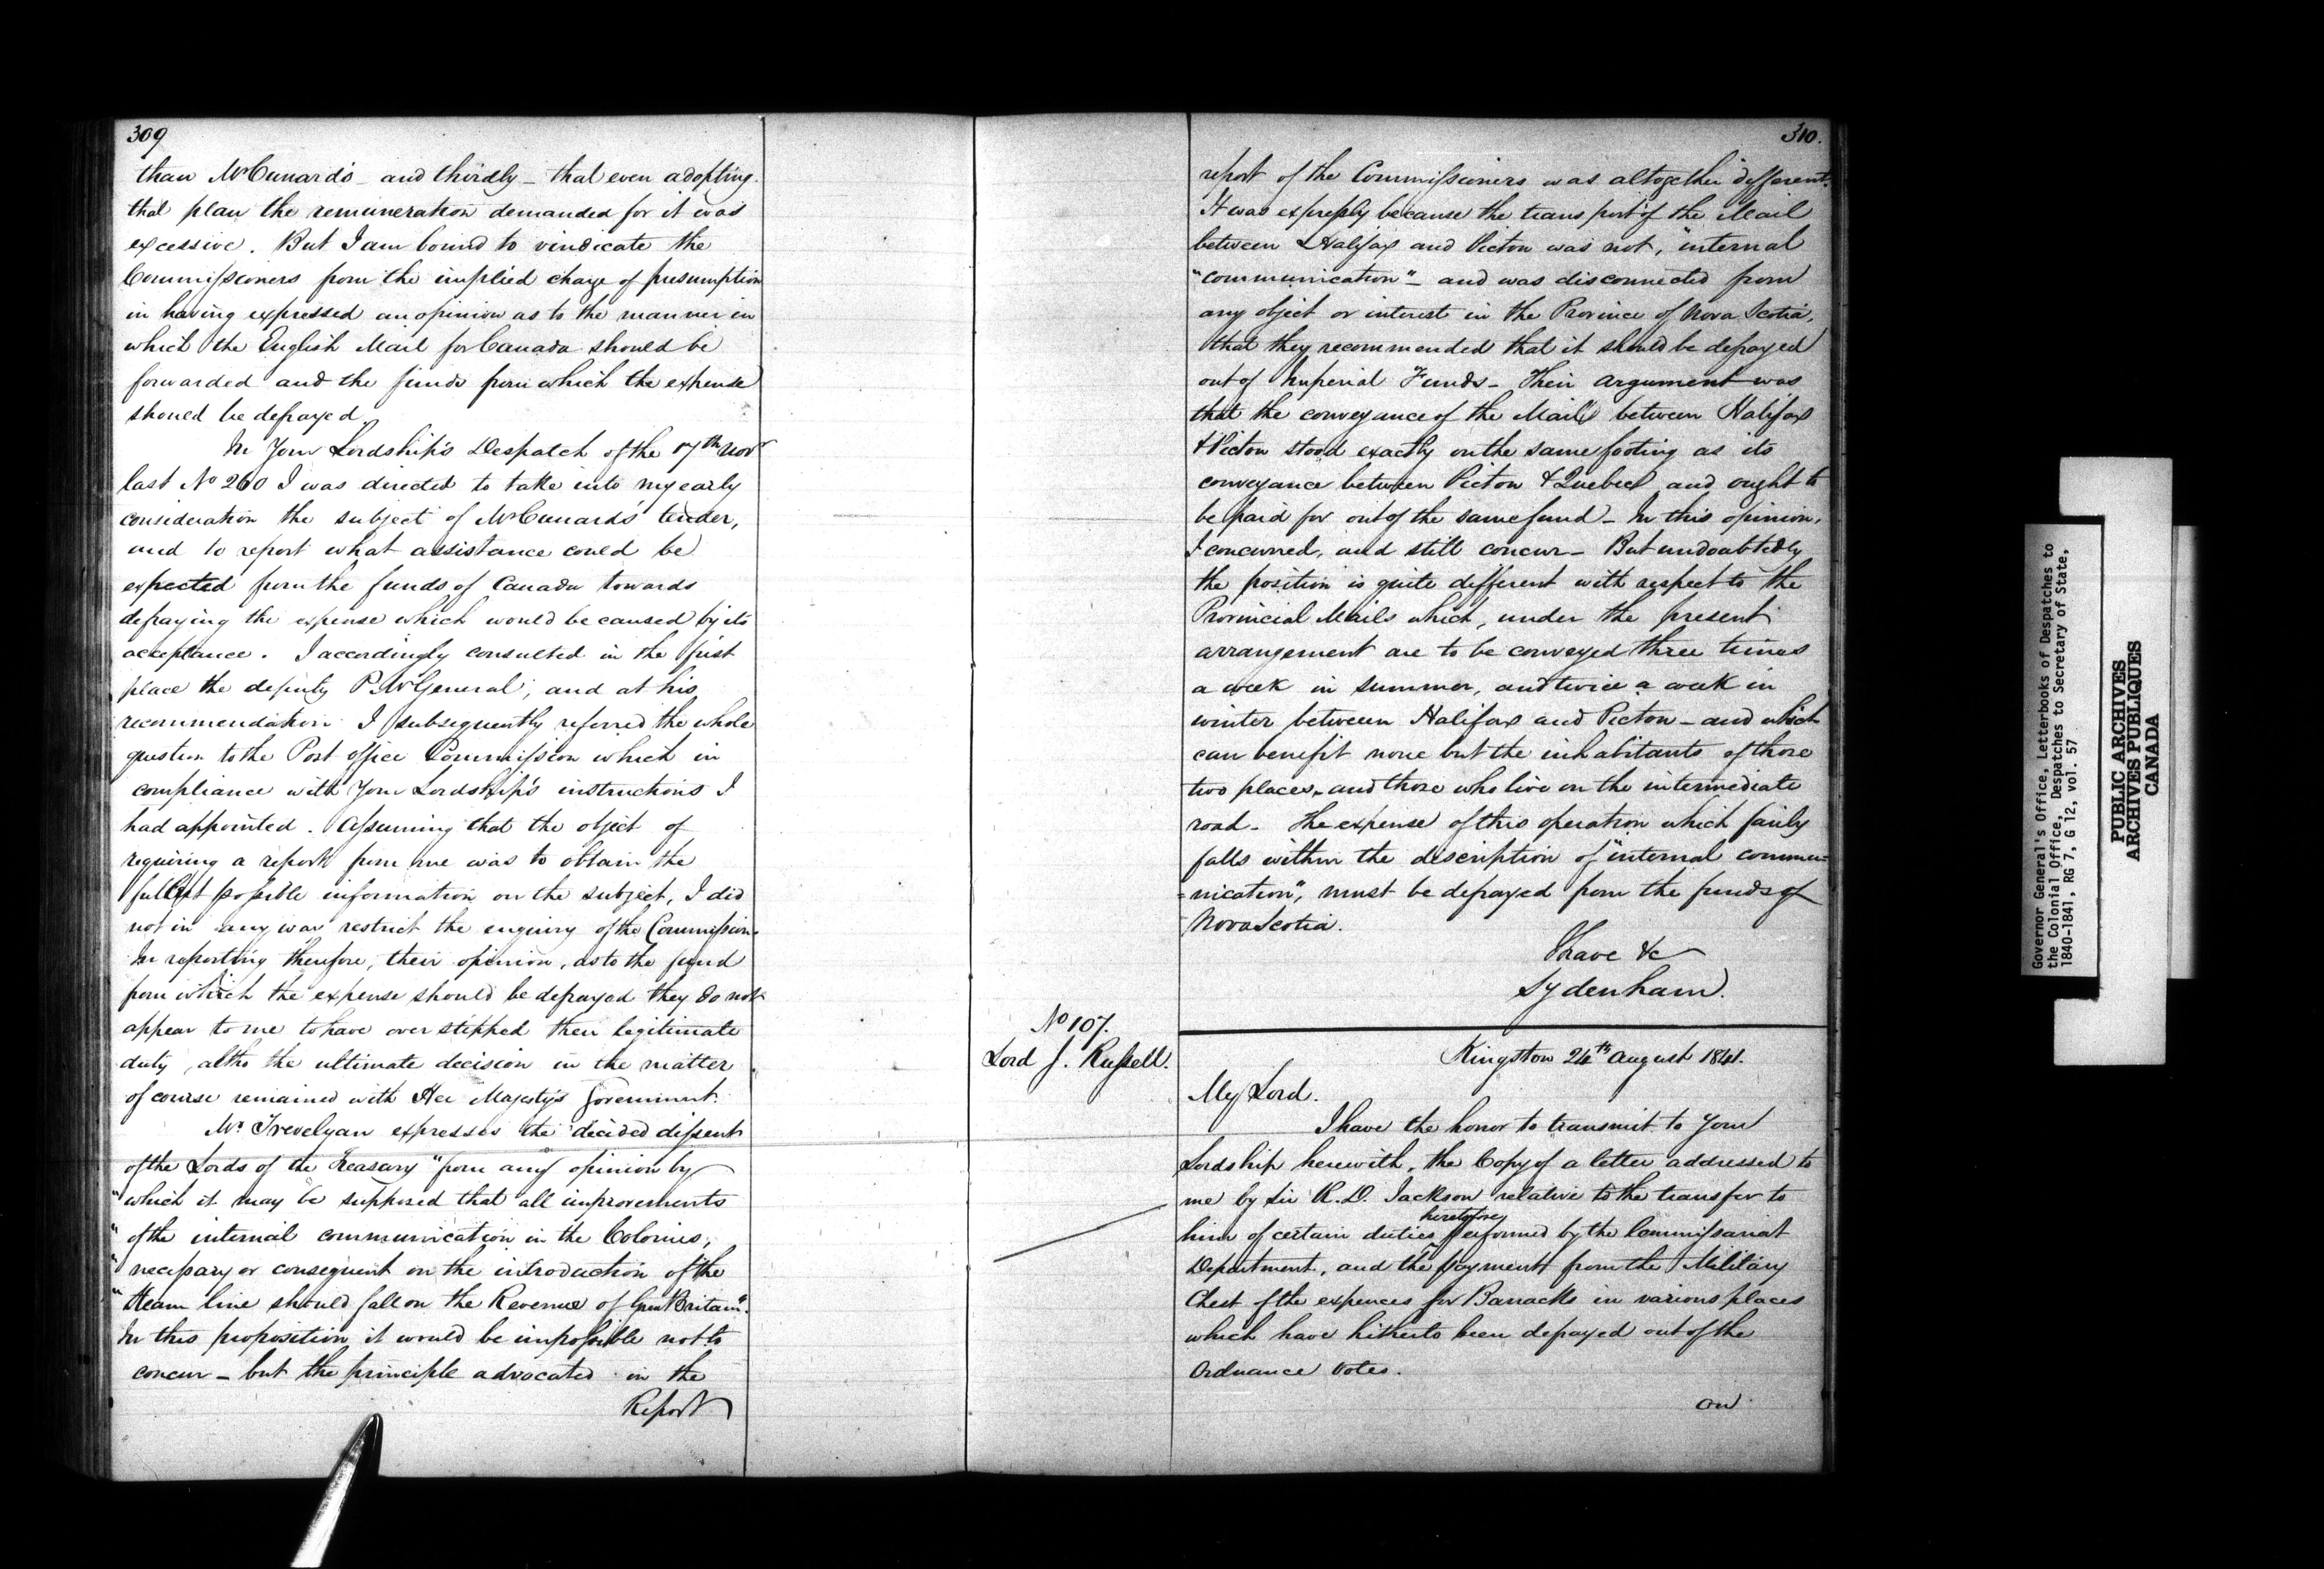 309
than Mr Cunard's - and thirdly - that even adopting
that plan the remuneration demanded for it was
excessive. But I am bound to vindicate the
Commissioners from the implied charge of presumption
in having expressed an opinion as to the manner in
which the English Mail for Canada should be
forwarded and the funds from which the expense
should be defrayed.
In Your Lordship's Despatch of the 17th Novr
last No 260 I was directed to take into my early
consideration the subject of Mr Cunard's tender,
and to report what assistance could be
expected from the funds of Canada towards
defraying the expense which would be caused by its
acceptance. I accordingly consulted in the first
place the deputy P. Mr General, and at his
recommendation I subsequently referred the whole
question to the Post office Commission which in
compliance with Your Lordship's instructions I
had appointed. Assuming that the object of
requiring a report from me was to obtain the
fullest possible information on the subject, I did
not in any way restrict the enquiry of the Commission.
In reporting therefore, their opinion, as to the fund
from which the expense should be defrayed they do not
appear to me to have over stepped their legitimate
duty, altho the ultimate decision in the matter
of course remained with Her Majesty's Government.
Mr Trevelyan expresses the decided dissent
of the Lords of the Treasury "from any opinion by
"which it may be supposed that all improvements
"of the internal communication in the Colonies,
"necessary or consequent on the introduction of the
"Steam line should fall on the Revenue of Great Britain".
In this proposition it would be impossible not to
concur - but the principle advocated in the
Report
310.
report of the Commissioners was altogether different.
It was expressly because the transport of the Mail
between Halifax and Picton was not, "internal
"communication" - and was disconnected from
any object or interest in the Province of Nova Scotia,
that they recommended that it should be defrayed
out of Imperial Funds - Their argument was
that the conveyance of the Mails between Halifax
& Picton stood exactly on the same footing as its
conveyance between Picton & Quebec and ought to
be paid for out of the same fund - In this opinion,
I concurred, and still concur - But undoubtedly
the position is quite different with respect to the
Provincial Mails which, under the present
arrangement are to be conveyed three times
a week in summer, and twice a week in
winter between Halifax and Picton - and which
can benefit none but the inhabitants of those
two places, and those who live on the intermediate
road - The expense of this operation which fairly
falls within the description of "internal commu=
=nication", must be defrayed from the funds of
Nova Scotia.
I have &c
Sydenham.
No 107.
Lord J. Russell.
Kingston 24th August 1841.
My Lord.
I have the honor to transmit to Your
Lordship herewith, the Copy of a letter addressed to
me by Sir R. D. Jackson relative to the transfer to
him of certain duties heretofore performed by the Commissariat
Department, and the payment from the Military
Chest of the expences for Barracks in various places
which have hitherto been defrayed out of the
Ordnance Votes.
On
Governor General's Office, Letterbooks of Despatches to
the Colonial Office, Despatches to Secretary of State,
1840-1841, RG 7, G 12, vol. 57
PUBLIC ARCHIVES
ARCHIVES PUBLIQUES
CANADA